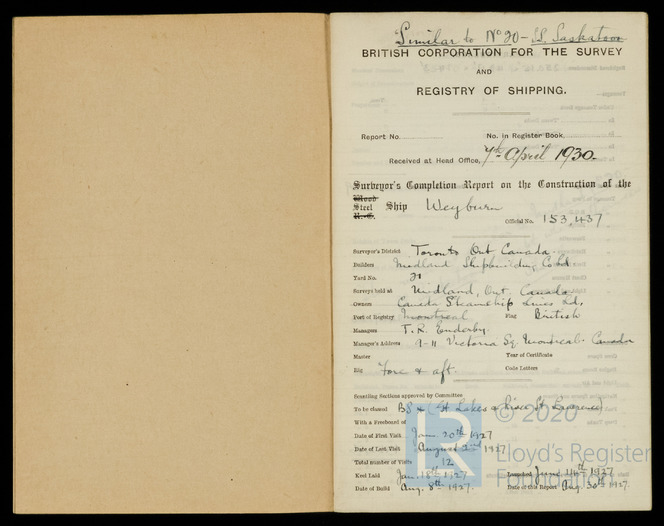 Similar to No 20 - S.S. Saskatoon
BRITISH CORPORATION FOR THE SURVEY
AND
REGISTRY OF SHIPPING.
Report No. No. in Register Book,
Received at Head Office, 7th April 1930.
Surveyor's Completion Report on the Construction of the
Wood
Steel Ship Weyburn
R.-C.
Official No. 153,437
Surveyor's District Toronto Ont Canada.
Builders Midland Shipbuilding Co Ld.
Yard No. 21
Surveys held at Midland, Ont, Canada
Owners Canada Steamship Lines Ld.
Port of Registry Montreal Flag British
Managers T. R. Enderby.
Manager's Address 9-11 Victoria Sq. Montreal. Canada
Master Year of Certificate
Rig Fore & aft. Code Letters
Scantling Sections approved by Committee
To be classed BS & Gt Lakes & River St Lawrence
With a Freeboard of
Date of First Visit Jan. 20th 1927
Date of Last Visit August 2nd 1927
Total number of Visits 12
Keel Laid Jan. 18th 1927 Launched June 14th 1927
Date of Build Aug. 8th 1927. Date of this Report Aug. 30th 1927.
LR © 2020
Lloyd's Register
Foundation